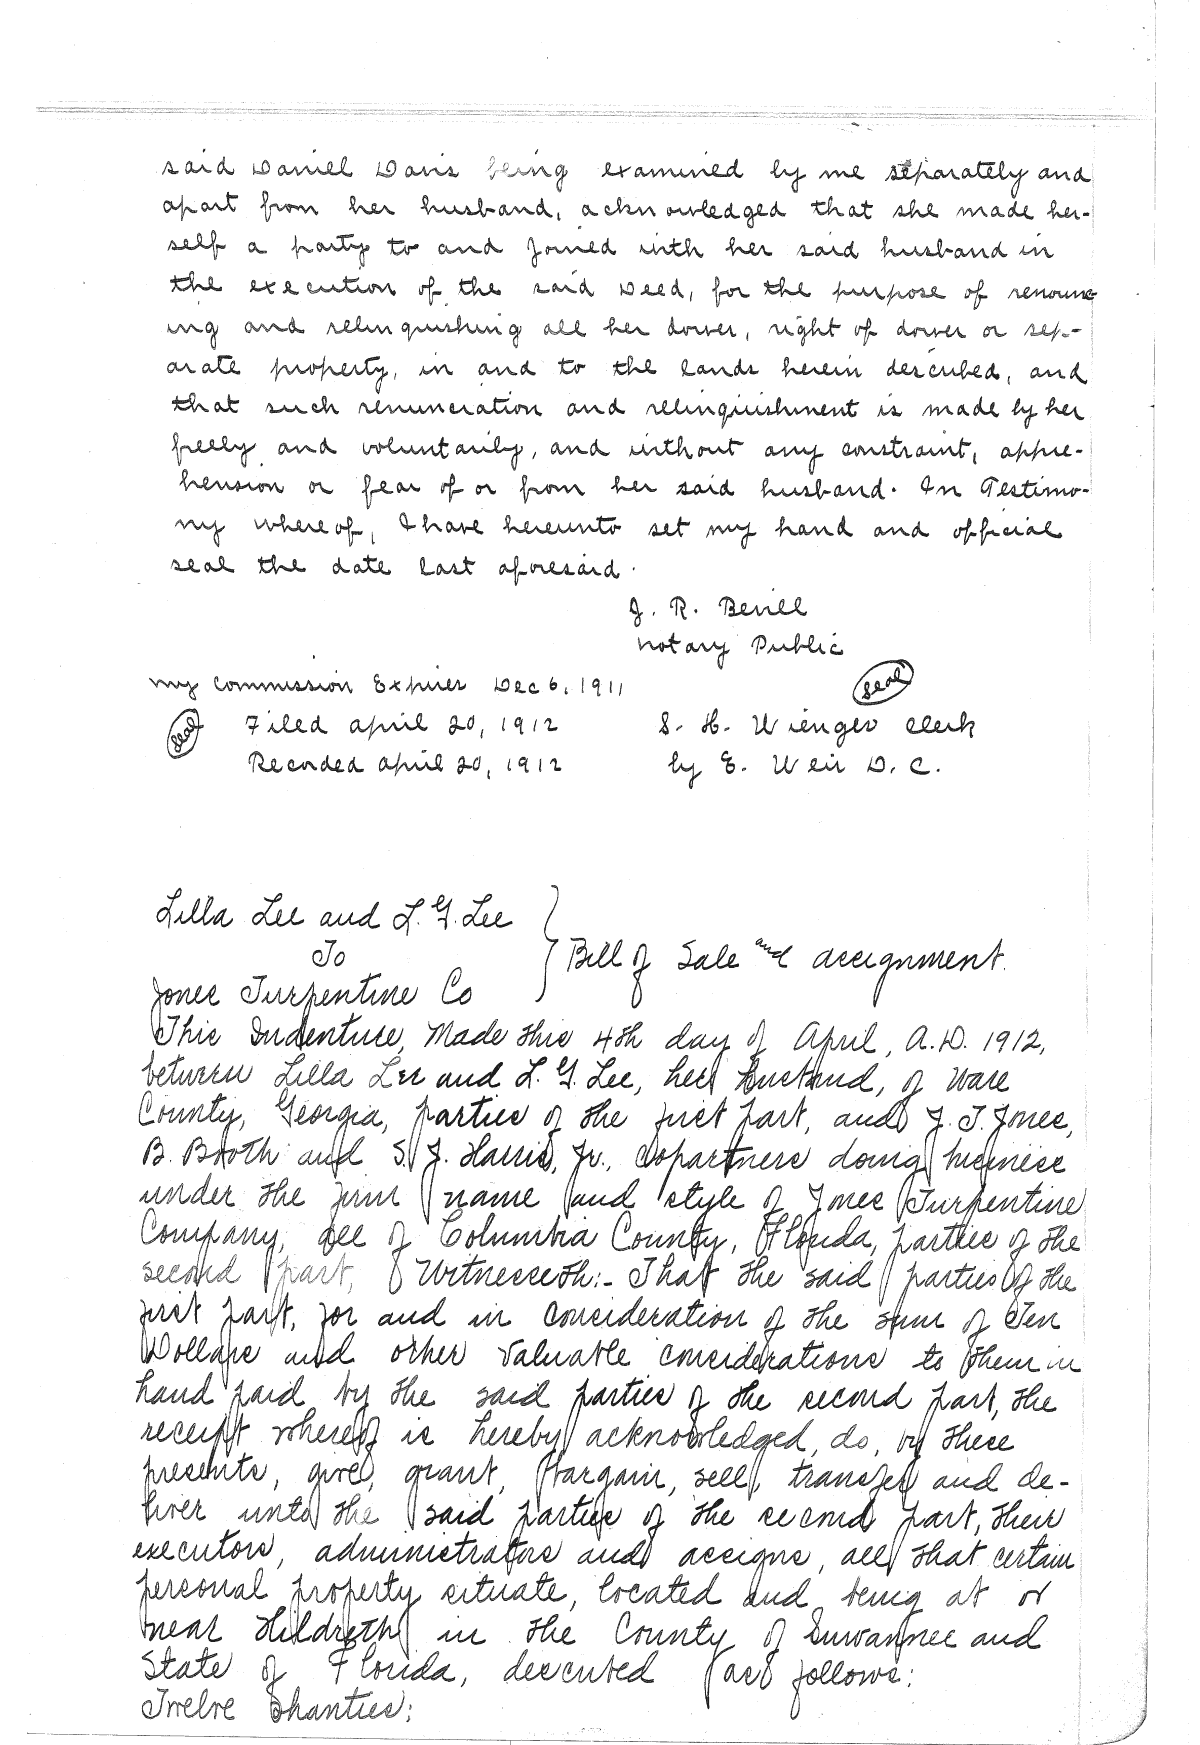 said Daniel Davis being examined by me separately and
apart from her husband, acknowledged that she made her-
self a party to and joined with her said husband in
the execution of the said Deed, for the purpose of renounc-
ing and relinquishing all her dower, right of dower or sep-
arate property, in and to the lands herein described, and
that such renunciation and relinquishment is made by her
freely and voluntarily, and without any constraint, appre-
hension or fear of or from her said husband. In Testimo-
ny whereof, I have hereunto set my hand and official
seal the date last aforesaid.
J. R. Bevill
Notary Public
My Commission Expires Dec 6, 1911
seal
seal Filed April 20, 1912 S. H. Wienges Clerk
Recorded April 20, 1912 by E. Weir D. C.
Lilla Lee and L. G. Lee
To Bill of Sale and assignment.
Jones Turpentine Co
This Indenture, Made this 4th day of April, A.D. 1912,
between Lilla Lee and L. G. Lee, her husband, of Ware
County, Georgia, parties of the first part, and J. T. Jones,
B. Booth and S. J. Harris, Jr., Copartners doing business
under the firm name and style of Jones Turpentine
Company, all of Columbia County, Florida, parties of the
second part, Witnesseth:- That the said parties of the
first part, for and in consideration of the sum of Ten
Dollars and other valuable considerations to them in
hand paid by the said parties of the second part, the
receipt whereof is hereby acknowledged, do, by these
presents, give, grant, bargain, sell, transfer and de-
liver unto the said parties of the second part, their
executors, administrators and assigns, all that certain
personal property situate, located and being at or
near Hildreth in the County of Suwannee and
State of Florida, described as follows:
Twelve Shanties;